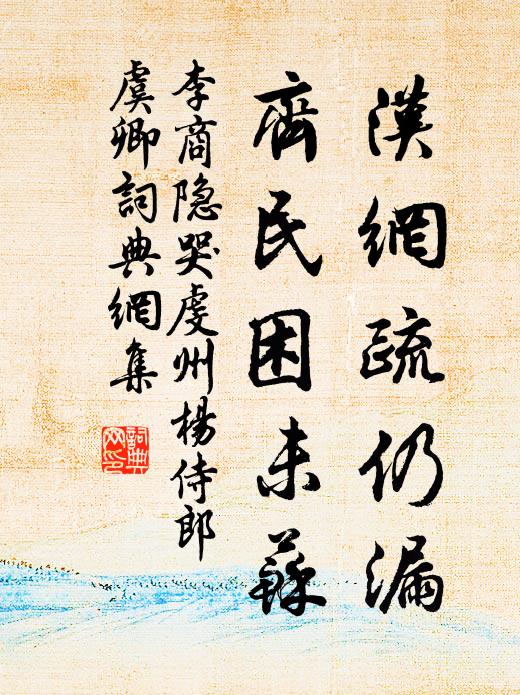 漢網疏仍漏
齊民困未蘇
李商隐哭虔州楊侍郎
虞卿詞典網集
詞典
网印